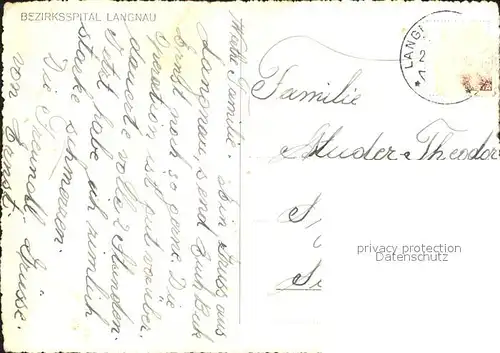 BEZIRKSSPITAL LANGNAU
Habe Familie. Ein Gruss aus
Langnau send Euch Beck
Ernst noch so gerne. Die
Operation ist gut vorüber,
dauerte volle 2 Stunden.
Jetzt habe ich zimlich
starke schmerzen.
Die Freundl. Grüsse.
von Ernst.
LANG
2
1
Familie
Studer-Theodor
S
S
privacy protection
Datenschutz